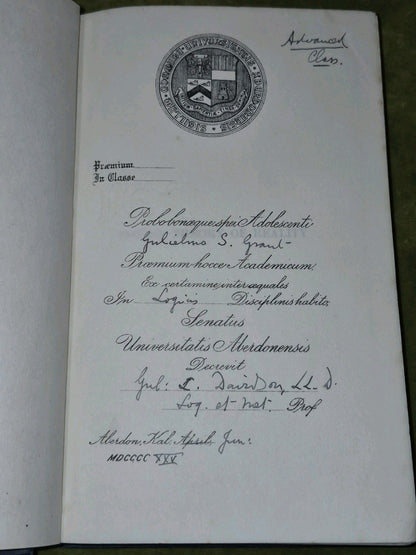 Advanced
Class.
INITIUM SAPIENTIÆ TIMOR DOMINI
Præmium
In Classe
Probo bonæque spei Adolescenti
Gulielmo S. Grant
Præmium hocce Academicum,
Ex certamine inter æquales
In Logicis Disciplinis habito,
Senatus
Universitatis Aberdonensis
Decrevit
Gul: L. Davidson, LL. D.
Log. et Met. Prof
Aberdon, Kal. April, Jun:
MDCCCC XXV